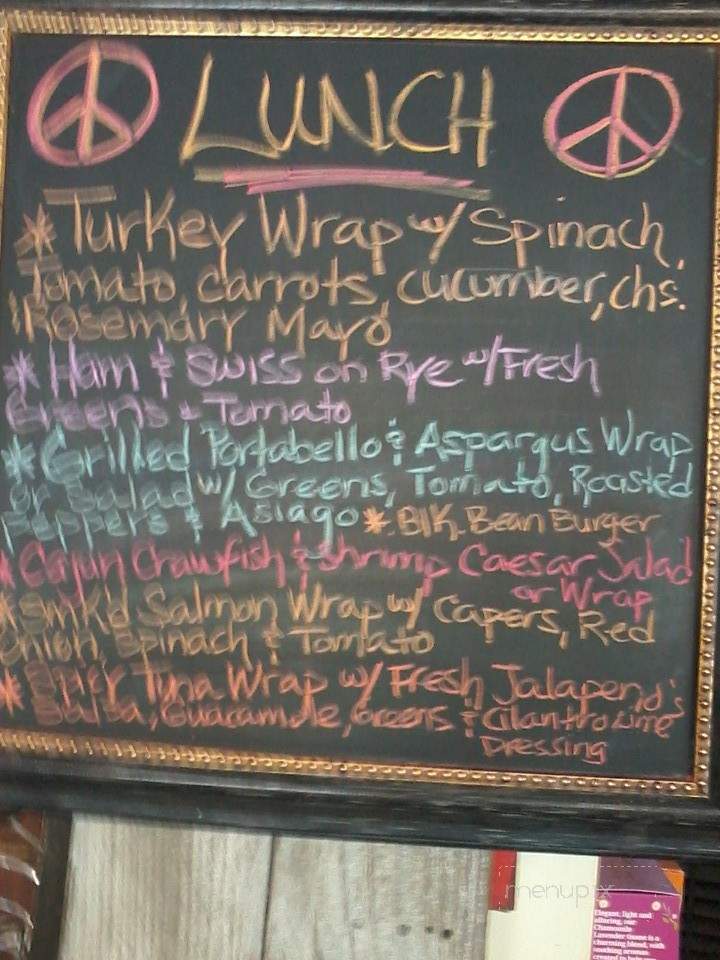 LUNCH
* Turkey Wrap w/ Spinach,
Tomato, carrots, cucumber, chs.
Rosemary Mayo
* Ham & Swiss on Rye w/ Fresh
Greens & Tomato
* Grilled Portabello & Aspargus Wrap
or Salad w/ Greens, Tomato, Roasted
Peppers & Asiago * Blk. Bean Burger
* Cajun Crawfish & shrimp Caesar Salad
or Wrap
* Smk'd Salmon Wrap w/ Capers, Red
Onion, Spinach & Tomato
* Spicy Tuna Wrap w/ Fresh Jalapeno's
Salsa, Guacamole, Greens & Cilantro Lime
Dressing
menupix
Elegant, light and
alluring, our
Chamomile
Lavender tisane is a
charming blend, with
soothing aromas
created to help you